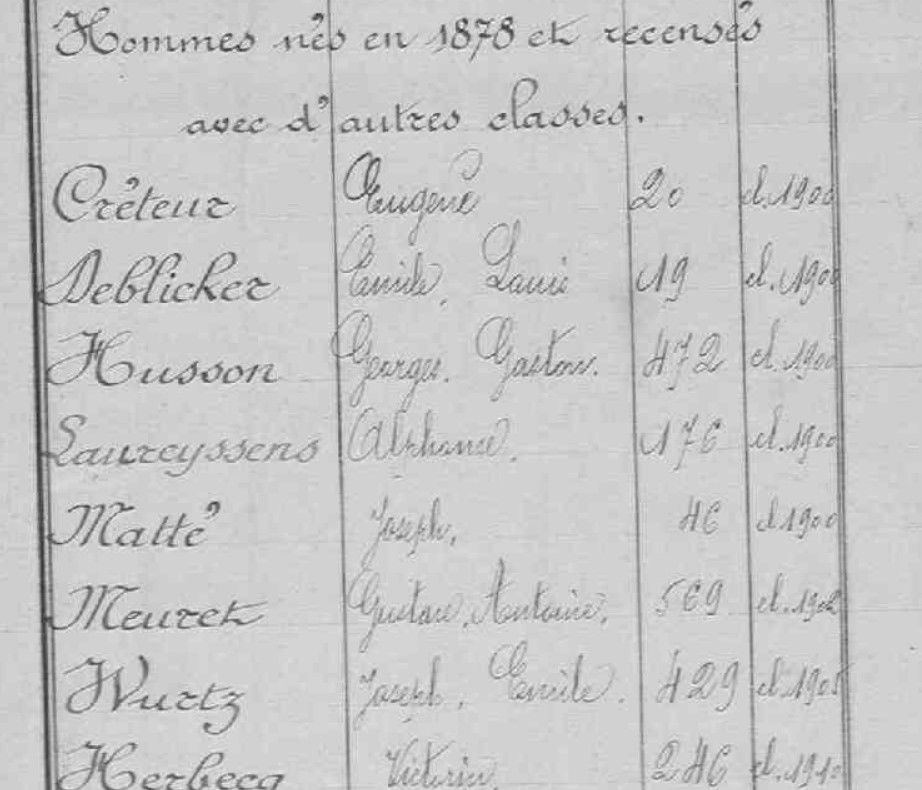 Hommes nés en 1878 et recensés
avec d'autres classes.
Créteur Eugène 20 cl. 1900
Deblicker Emile, Louis 19 cl. 1900
Husson Georges, Gaston. 472 cl. 1900
Laureyssens Alphonse. 176 cl. 1900
Matté Joseph. 46 cl 1900
Meuret Gustave, Antoine. 569 cl. 1902
Wurtz Joseph, Emile. 429 cl. 1905
Herbecq Victorin. 246 cl. 1910